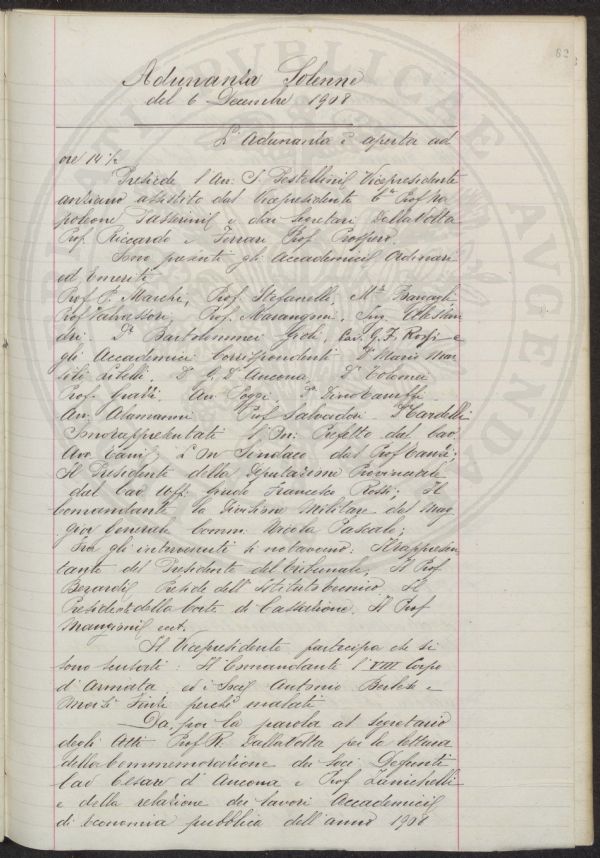 82
Adunanza Solenne
del 6 Decembre 1908
L'Adunanza è aperta ad
ore 14 ½
Presiede l'Av. S. Pestellini Vicepresidente
anziano assistito dal Vicepresidente Prof Na
poleone Passerini e dai segretari Dalla Volta
Prof. Riccardo e Ferrari Prof. Prospero.
Sono presenti gli Accademici Ordinari
ed Emeriti
Prof P. Marchi, Prof. Stefanelli, M.se
Prof Valvassori, Prof. Marangoni, Ing. Alessan
dri. Dr Bartolommei Gioli, Cav. G. F. Rossi e
gli Accademici Corrispondenti Dr Mario Mar
sili Libelli. Dr G. D'Ancona, Dr Tolomei
Prof. Av. Poggi. Dr Dino Taruffi.
Av. Aramanni Prof Salvadori Dr Cardelli
Sono rappresentati l'On: Prefetto dal Cav.
Avv. L'On Sindaco dal Prof Banti;
Il Presidente della Deputazione Provinciale
dal Cav Uff: Guido Francesco Rossi; Il
Comandante la Divisione Militare dal Mag
gior Generale Comm: Nicola Pascale;
Fra gli intervenuti si notavano: Il rappresen
tante del Presidente del Tribunale, Il Prof.
Berardi Preside dell'Istituto tecnico Il
Presidente della Corte di Cassazione. Il Prof
Mangioni ect.
Il Vicepresidente partecipa che si
sono scusati: Il Comandante l'VIII Corpo
d'Armata, ed i Soci Antonio e
perchè malati
Da, poi la parola al segretario
degli Atti Prof R. Dalla Volta per la lettura
della Commemorazione dei Soci Defunti
Cav Cesare d'Ancona e Prof Zanichelli
e della relazione dei lavori Accademici
di economia pubblica dell'anno 1908